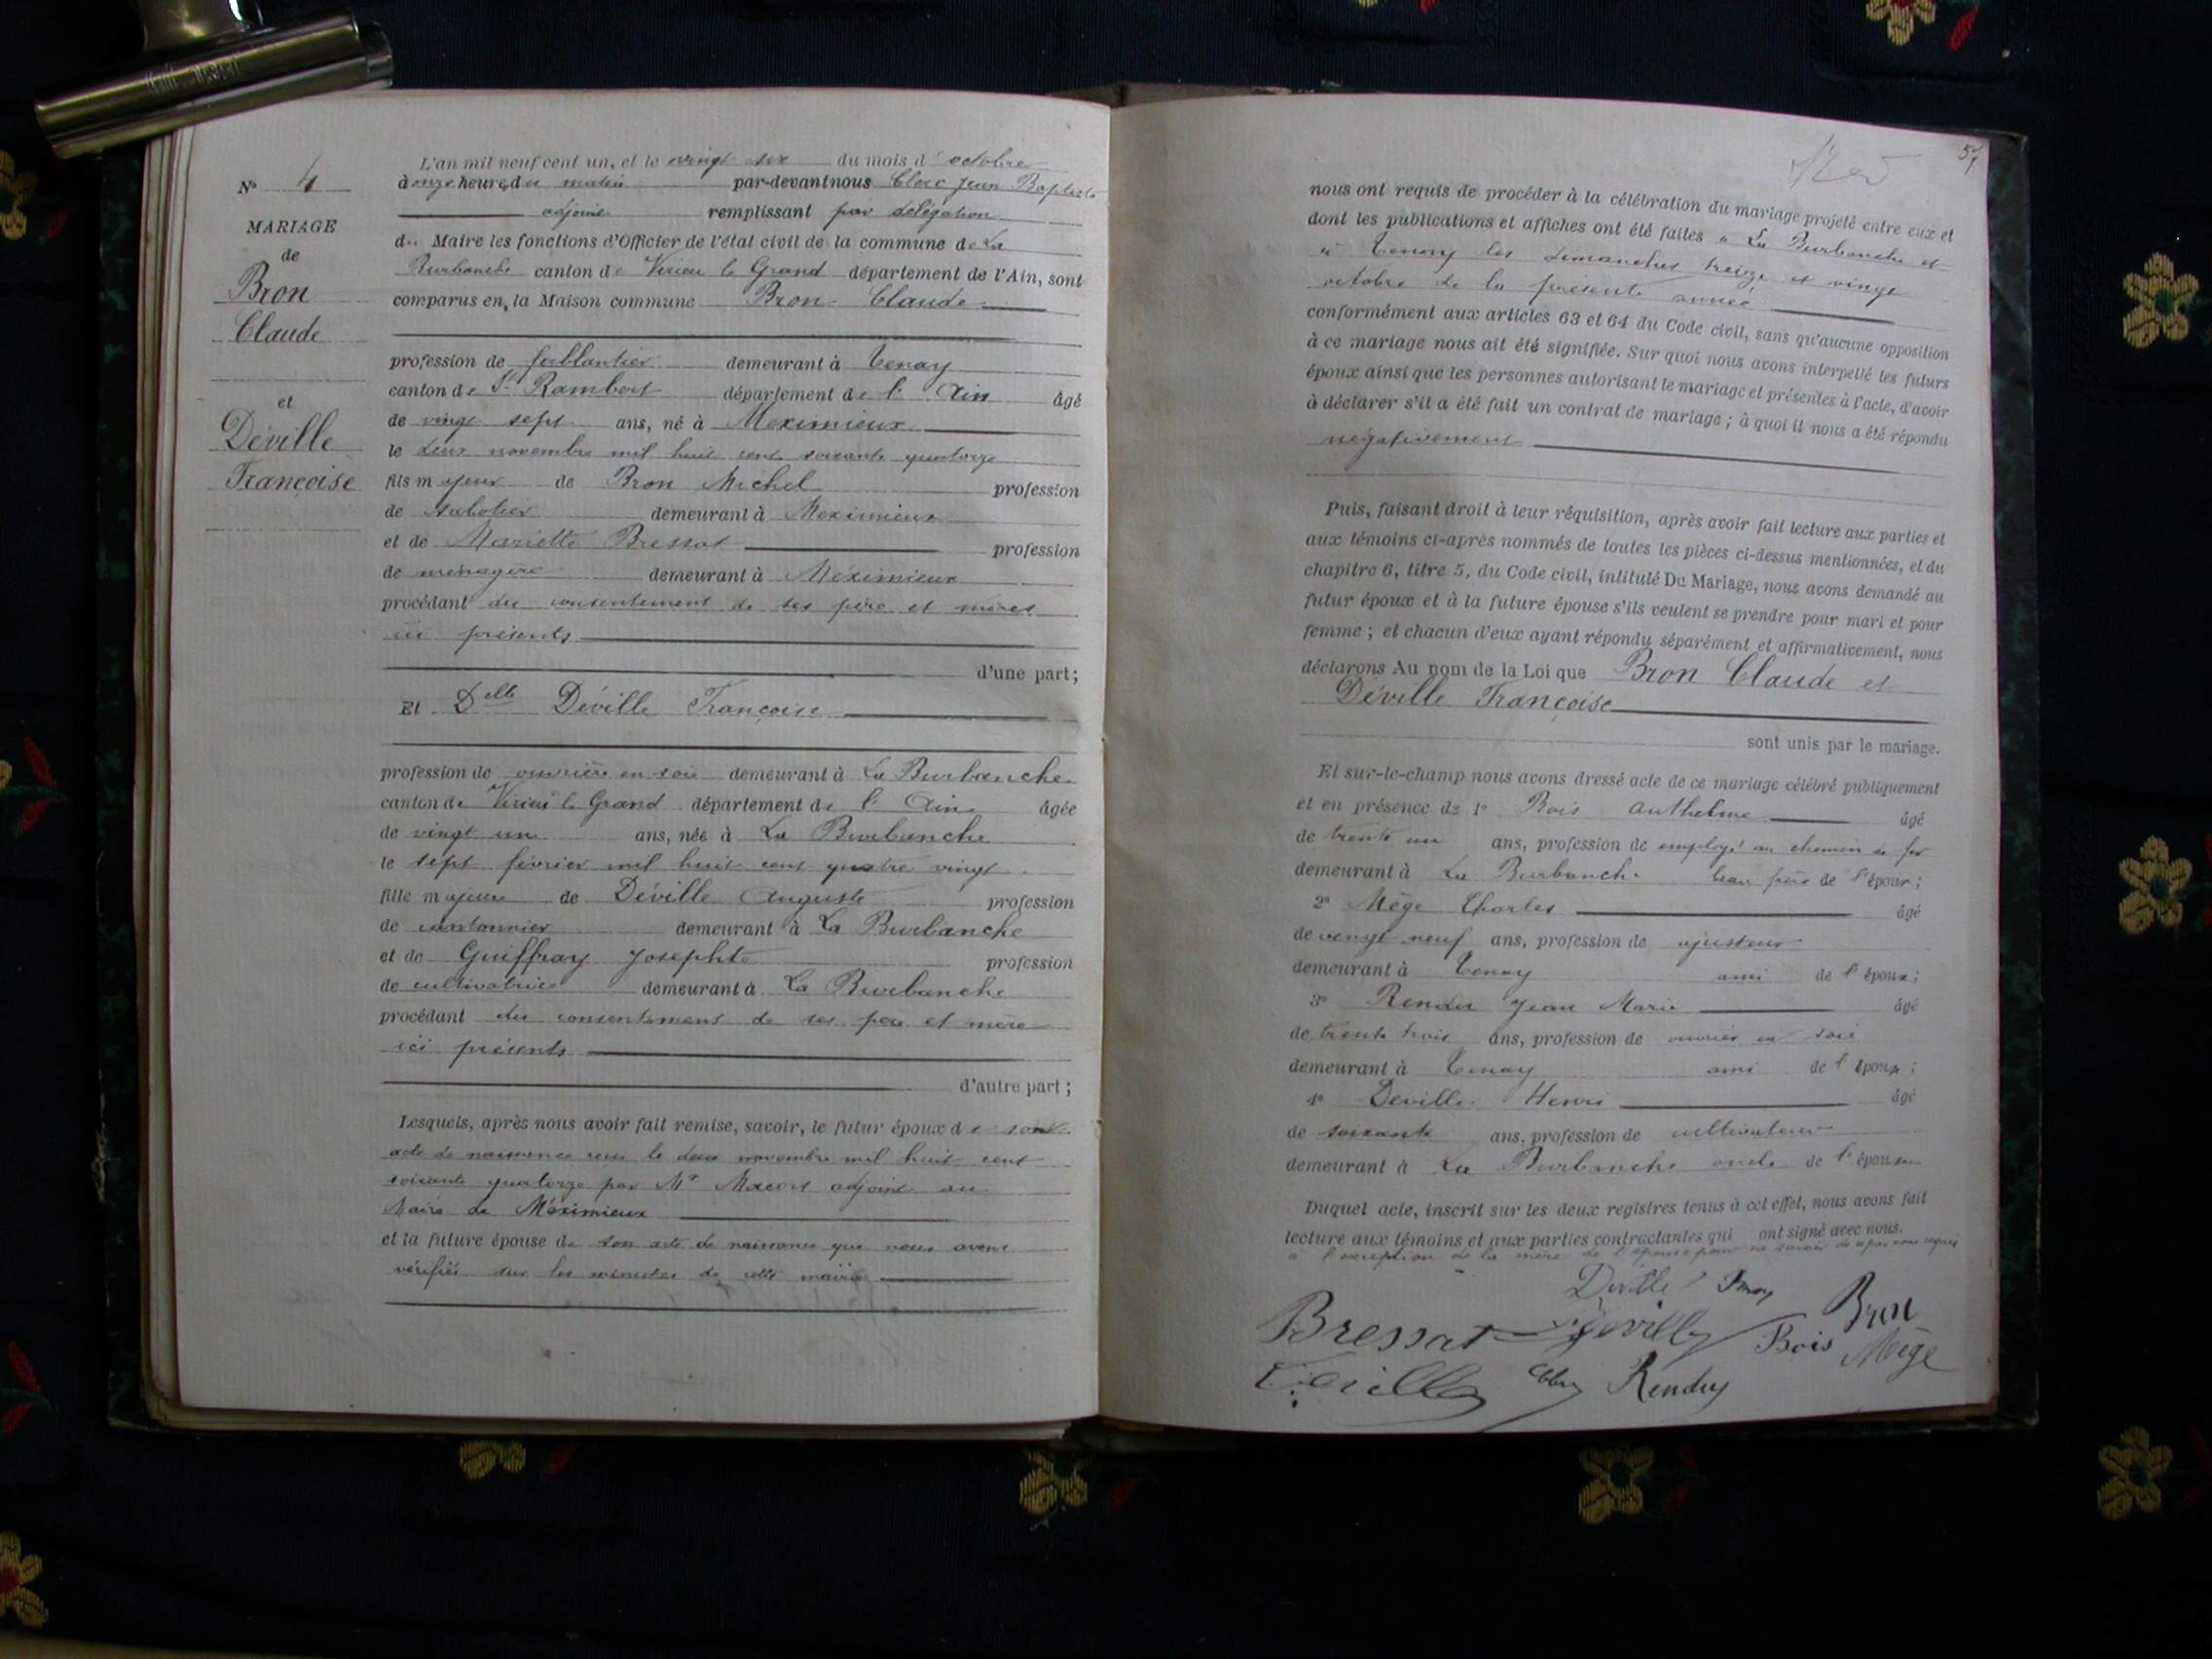 N° 4
MARIAGE
de
Bron
Claude
et
Déville
Françoise
L'an mil neuf cent un, et le vingt six du mois d'octobre
à onze heures du matin par-devant nous Clerc Jean Baptiste
adjoint remplissant par délégation
du Maire les fonctions d'Officier de l'état civil de la commune de La
Burbanche canton de Virieu le Grand département de l'Ain, sont
comparus en la Maison commune Bron Claude
profession de ferblantier demeurant à Tenay
canton de St Rambert département de l'Ain âgé
de vingt sept ans, né à Meximieux
le deux novembre mil huit cent soixante quatorze
fils majeur de Bron Michel profession
de sabotier demeurant à Meximieux
et de Mariette Bressat profession
de ménagère demeurant à Méximieux
procédant du consentement de ses père et mères
ici présents
d'une part;
Et Delle Déville Françoise
profession de ouvrière en soie demeurant à La Burbanche
canton de Virieu le Grand département de l'Ain âgée
de vingt un ans, née à La Burbanche
le sept février mil huit cent quatre vingt
fille majeure de Déville Auguste profession
de cantonnier demeurant à La Burbanche
et de Guiffray Josephte profession
de cultivatrice demeurant à La Burbanche
procédant du consentement de ses père et mère
ici présents
d'autre part;
Lesquels, après nous avoir fait remise, savoir, le futur époux de son
acte de naissance reçu le deux novembre mil huit cent
soixante quatorze par Mr adjoint au
Maire de Méximieux
et la future épouse de son acte de naissance que nous avons
vérifiés sur les minutes de cette mairie
57
nous ont requis de procéder à la célébration du mariage projeté entre eux et
dont les publications et affiches ont été faites à La Burbanche et
à Tenay les dimanches treize et vingt
octobre de la présente année
conformément aux articles 63 et 64 du Code civil, sans qu'aucune opposition
à ce mariage nous ait été signifiée. Sur quoi nous avons interpellé les futurs
époux ainsi que les personnes autorisant le mariage et présentes à l'acte, d'avoir
à déclarer s'il a été fait un contrat de mariage; à quoi il nous a été répondu
négativement
Puis, faisant droit à leur réquisition, après avoir fait lecture aux parties et
aux témoins ci-après nommés de toutes les pièces ci-dessus mentionnées, et du
chapitre 6, titre 5, du Code civil, intitulé Du Mariage, nous avons demandé au
futur époux et à la future épouse s'ils veulent se prendre pour mari et pour
femme; et chacun d'eux ayant répondu séparément et affirmativement, nous
déclarons Au nom de la Loi que Bron Claude et
Déville Françoise
sont unis par le mariage.
Et sur-le-champ nous avons dressé acte de ce mariage célébré publiquement
et en présence de 1° Bois Anthelme âgé
de trente un ans, profession de employé au chemin de fer
demeurant à La Burbanche beau frère de l'époux;
2° Mège Charles âgé
de vingt neuf ans, profession de ajusteur
demeurant à Tenay ami de l'époux;
3° Rendu Jean Marie âgé
de trente trois ans, profession de ouvrier en soie
demeurant à Tenay ami de l'époux;
4° Deville Henri âgé
de soixante ans, profession de cultivateur
demeurant à La Burbanche oncle de l'épouse
Duquel acte, inscrit sur les deux registres tenus à cet effet, nous avons fait
lecture aux témoins et aux parties contractantes qui ont signé avec nous.
à l'exception de la mère de l'épouse pour ne savoir de ce par nous requis
Deville Bron
Bressat Deville Bois Mège
Deville Rendu